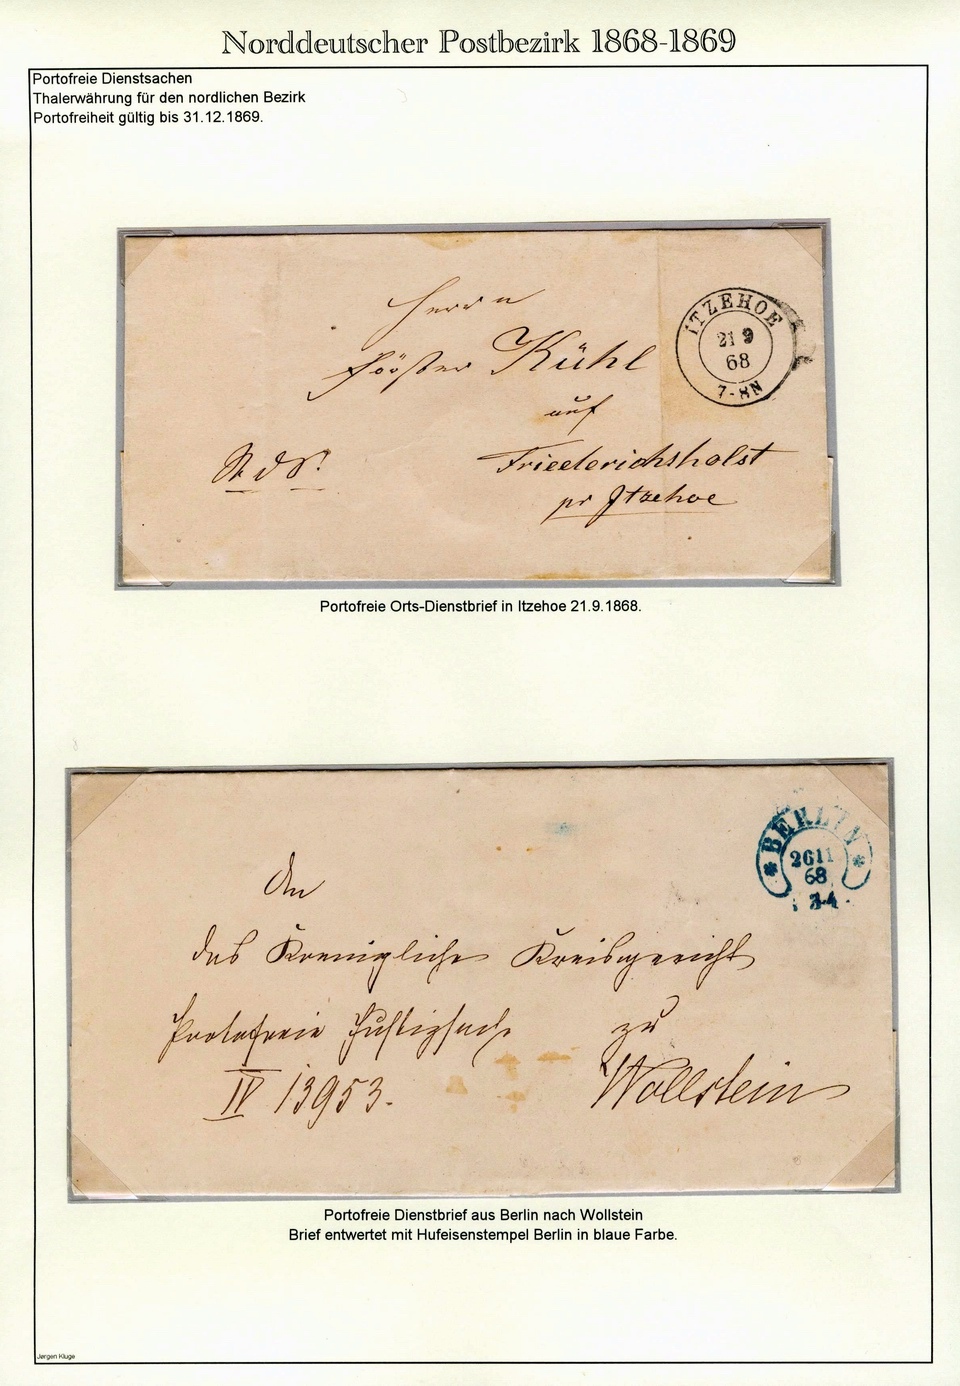 Norddeutscher Postbezirk 1868-1869
Portofreie Dienstsachen
Thalerwährung für den nordlichen Bezirk
Portofreiheit gültig bis 31.12.1869.
Herrn
Förster Kühl
auf
Friederichsholst
pr Itzehoe
ITZEHOE
21 9
68
7-8N
Portofreie Orts-Dienstbrief in Itzehoe 21.9.1868.
BERLIN
26 11
68
3-4
An
das Koenigliche Kreisgericht
Portofreie Justizsache zu
IV 13953. Wollstein
Portofreie Dienstbrief aus Berlin nach Wollstein
Brief entwertet mit Hufeisenstempel Berlin in blaue Farbe.
Jørgen Kluge